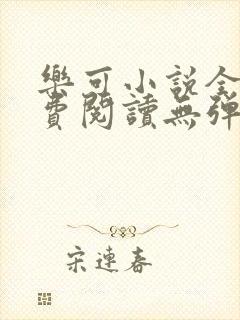 樂可小說全
費閱讀無彈
宋連春